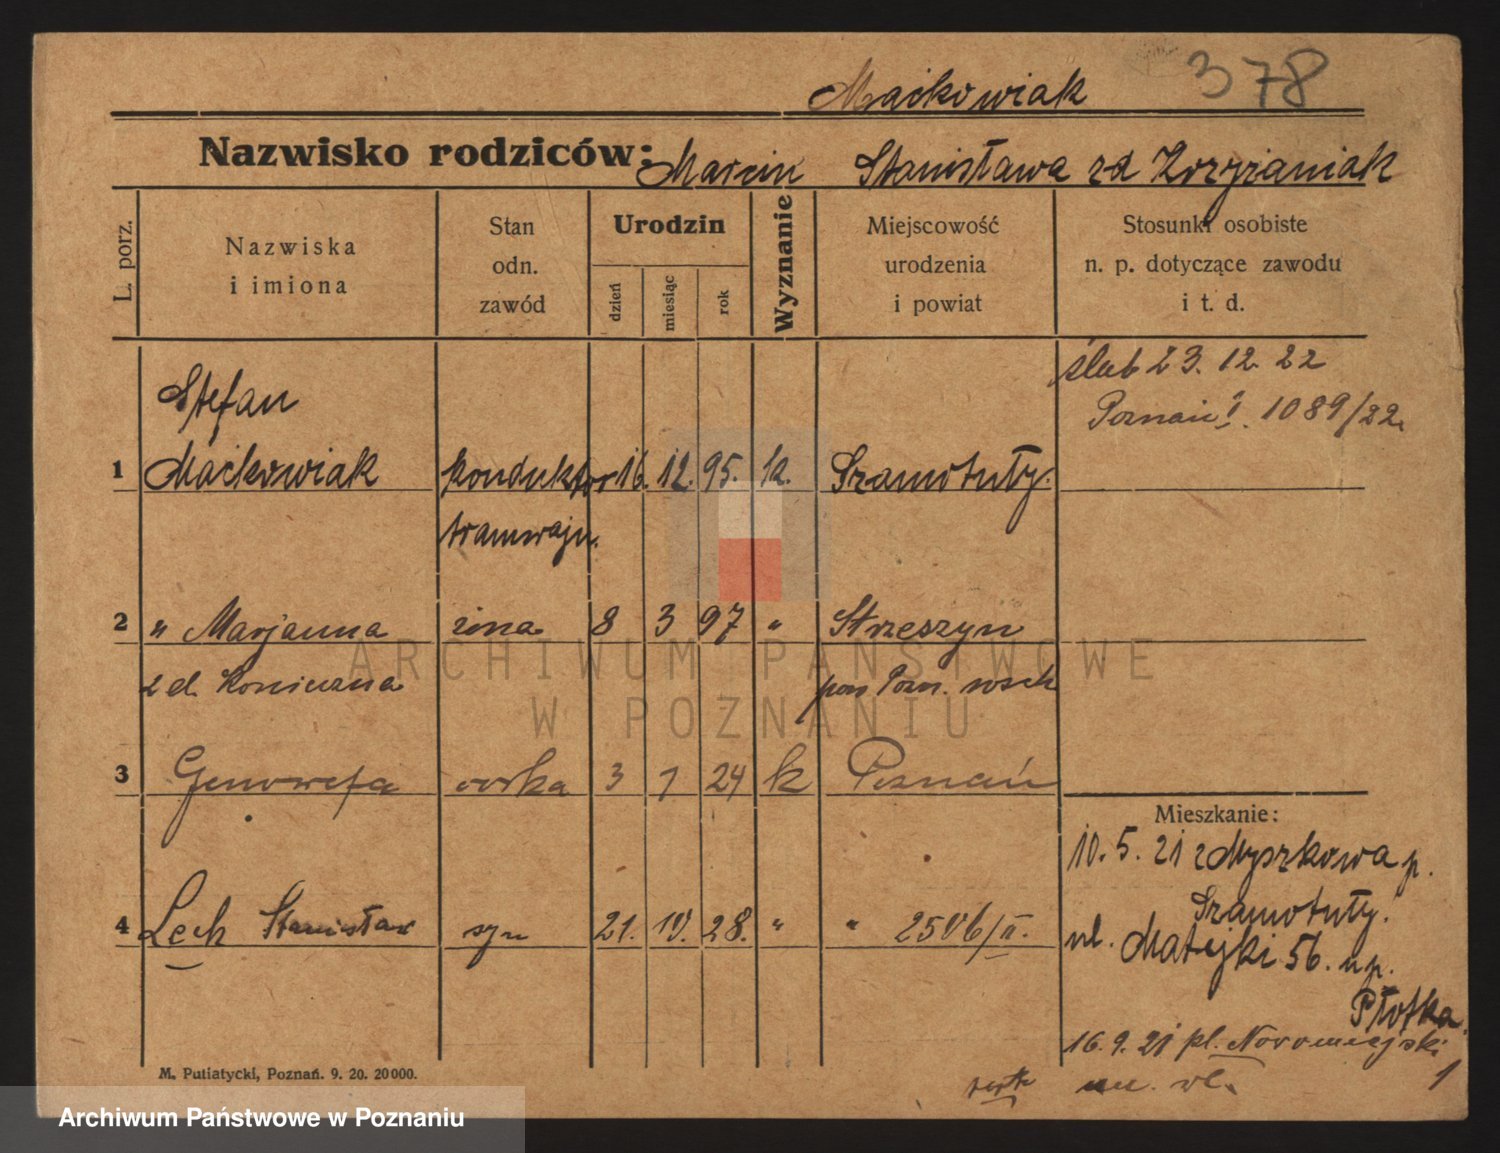 378
Maćkowiak
Nazwisko rodziców: Marcin Stanisława zd Krzyżaniak
L. porz.
Nazwiska
i imiona
Stan
odn.
zawód
Urodzin
dzień
miesiąc
rok
Wyznanie
Miejscowość
urodzenia
i powiat
Stosunki osobiste
n. p. dotyczące zawodu
i t. d.
ślub 23. 12. 22
Poznań I. 1089/22.
Stefan
1 Maćkowiak konduktor 16. 12. 95. k. Szamotuły.
tramwaju.
2 " Marjanna żona 8 3 97 " Strzeszyn
zd. Konieczna pow Pozn. wsch
3 Genowefa córka 3 1 24 k Poznań
Mieszkanie:
10. 5. 21 z Myszkowa p.
Szamotuły.
4 Lech Stanisław syn 21. IV. 28. " " 2506/II.
ul. Matejki 56. u p.
Płotka.
16. 9. 21 pl. Nowomiejski
1
M. Putiatycki, Poznań. 9. 20. 20000.
ARCHIWUM PAŃSTWOWE
W POZNANIU
Archiwum Państwowe w Poznaniu